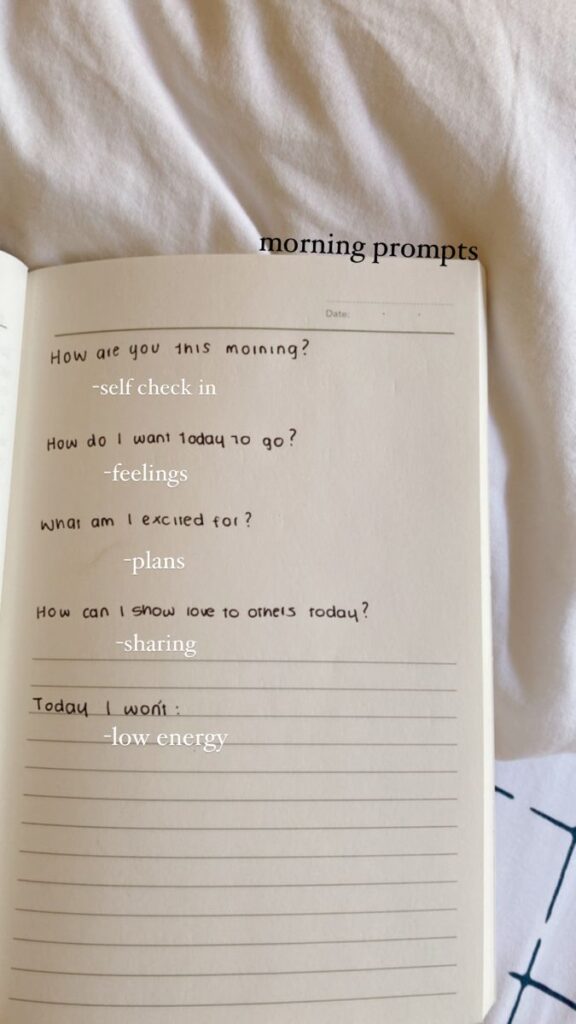 morning prompts
Date:
How are you this morning?
-self check in
How do I want today to go?
-feelings
What am I excited for?
-plans
How can I show love to others today?
-sharing
Today I won't:
-low energy